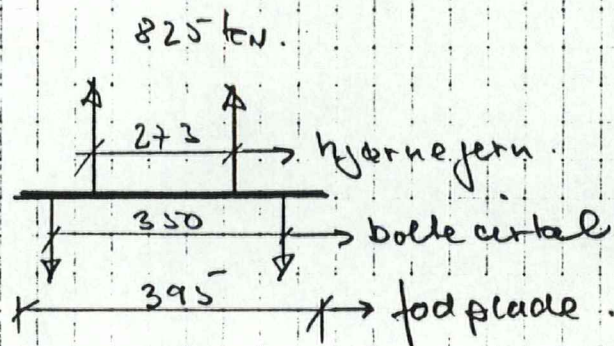 825 kN.
273 hjørnejern.
350 boltecirkel
395 fodplade.